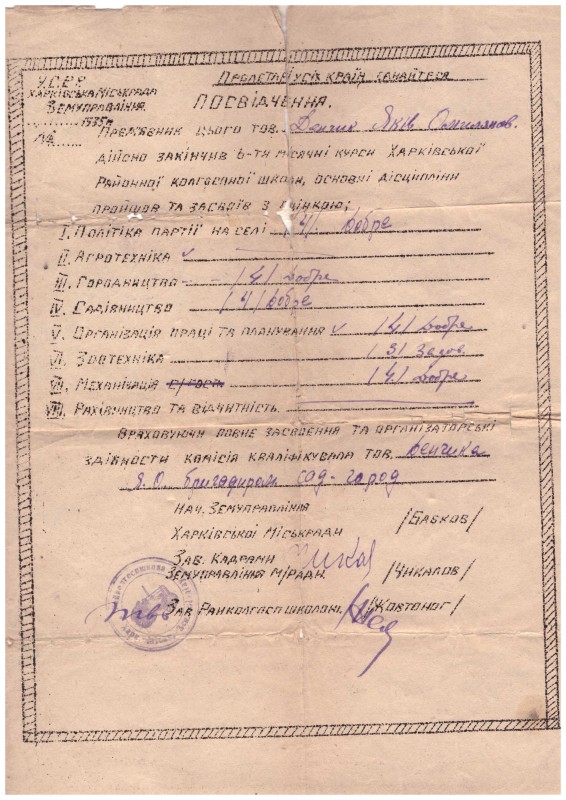 У.С.Р.Р.
Пролетарі усіх країн, єднайтеся
Харківська міськрада
Земуправління
1935 р
№
Посвідчення.
Пред'явник цього тов. Денчик Яків Омелянов.
дійсно закінчив 6-ти місячні курси Харківської
районної колгоспної школи, основні дісципліни
пройшов та засвоїв з оцінкою:
I. Політіка партії на селі /4/. Добре
II. Агротехніка
III. Городництво /4/ Добре
IV. Садівництво /4/ Добре
V. Організація праці та планування /4/ Добре
VI. Зоотехніка /3/ Задов.
VII. Механізація /4/ Добре
VIII. Рахівництво та відчитність
Враховуючи повне засвоення та організаторські
здібности комісія кваліфікувала тов. Денчика
Я. О. бригадиром сад-город
Нач. Земуправління
Харківської Міськради /Бабков/
Зав. Кадрами
Земуправління М/Ради. /Чикалов/
Зав. Райколгоспшколою, /Жовтоног/